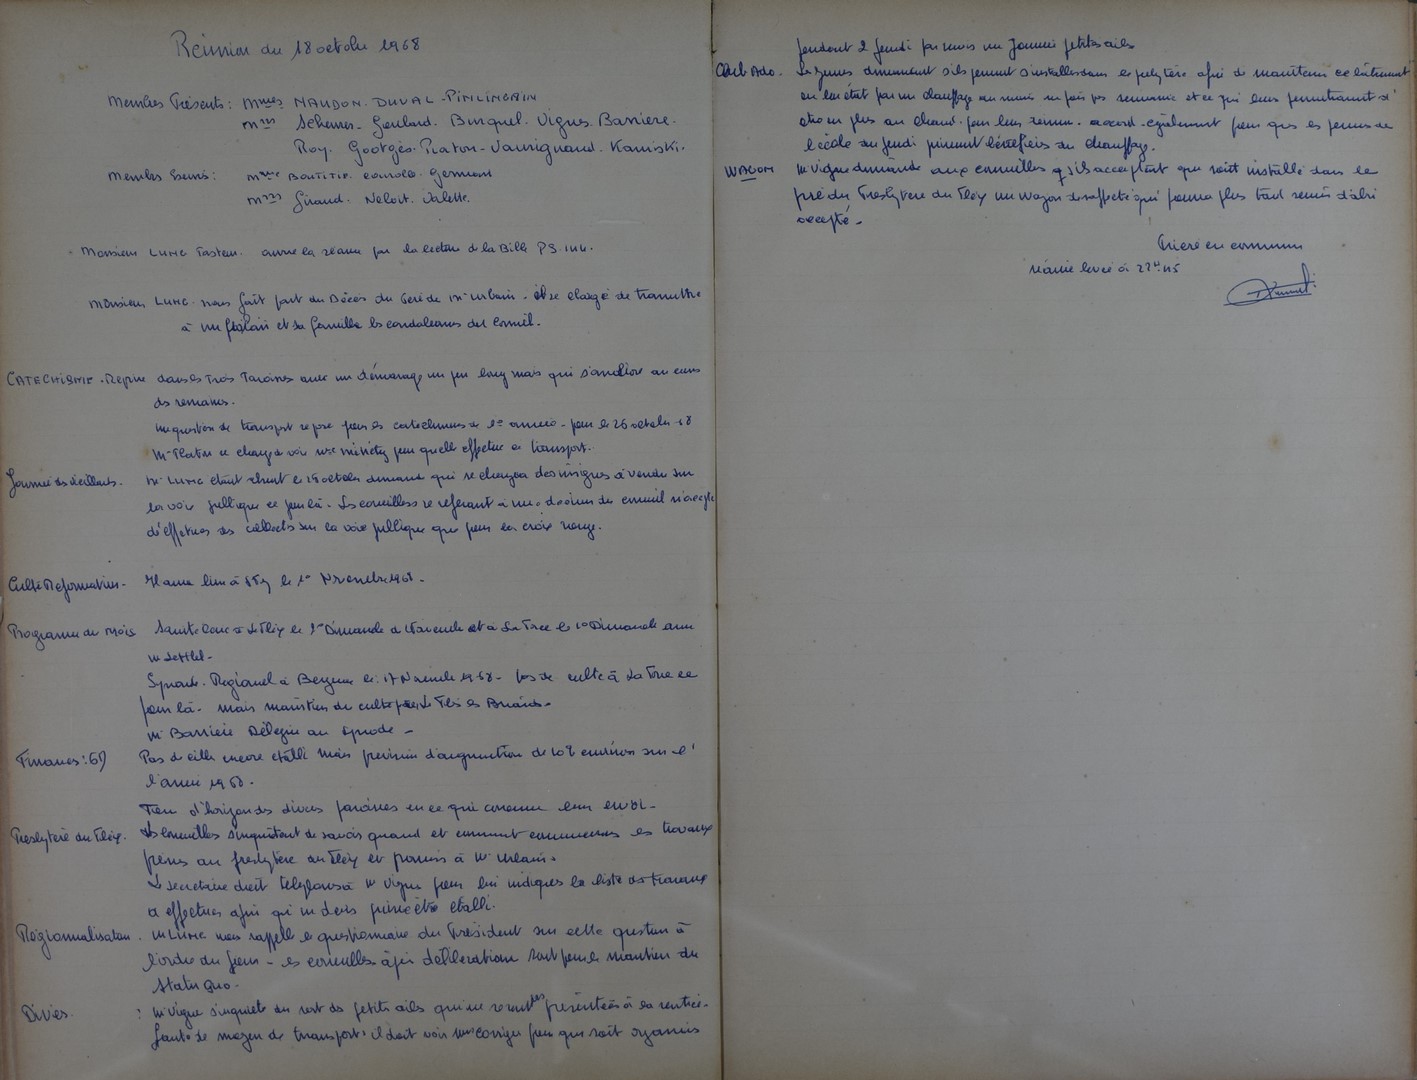 Réunion du 18 octobre 1968
Membres Présents : Mmes NAUDON. DUVAL
Mrs Goulard. Burquel. Vignes. Barriere.
Roy. Georges. Platon
Membres Excusés : Mme Germont
Mrs Giraud. Valette.
Monsieur LUNG Pasteur. ouvre la séance par la lecture de la Bible PS. 144.
Monsieur LUNG. nous fait part du Décès du Père de Mr Urbain. et se charge de transmettre
à et sa famille les condoléances du Conseil.
CATECHISME. Reprise dans les trois Paroisses avec un démarrage un peu long mais qui s'améliore au cours
des semaines.
une question de transport se pose pour les catéchumènes de 1ère année. pour le 26 octobre 68
Mr Platon se charge de voir pour qu'elle effectue ce transport.
Journée des vieillards. Mr LUNG étant absent le octobre demande qui se chargera des insignes à vendre sur
la voie publique ce jour là. Les conseillers se référant à une décision du conseil n'accepte
d'effectuer des collectes sur la voie publique que pour la croix rouge.
Culte Reformation. Il aura lieu à le 1er Novembre 1968.
Programme du mois Sainte Cène à Le Fleix le 1er Dimanche de Novembre et à La Force le Dimanche avec
Mr
Synode. Régional à Bergerac le 17 Novembre 1968. pas de culte à La Force ce
jour là. mais maintien du culte Le Fleix les Briands.
Mr Barriere Délégué au Synode.
Finances : 69 Pas de encore établi mais prévision d'augmentation de 10% environ sur
l'année 1968.
Tour d'horizon des divers paroisses en ce qui concerne leur envoi.
Presbytère du Fleix. Les conseillers s'inquiètent de savoir quand et comment commencer les travaux
prévus au presbytère du Fleix et promis à Mr Urbain.
Le secrétaire doit téléphoner à Mr Vigne pour lui indiquer la liste des travaux
à effectuer afin qu'un devis puisse être établi.
Régionalisation. Mr LUNG nous rappelle le questionnaire du Président sur cette question à
l'ordre du jour. les conseillers après délibération sont pour le maintien du
Statu Quo.
Divers. : Mr Vigne s'inquiète du sort des petits ailes qui ne se sont pas présentées à la rentrée.
faute de moyen de transport. il doit voir pour que soit organisé
pendant 2 jeudi par mois une Journée petites ailes
Club Ado. Les jeunes demandent s'ils peuvent s'installer dans le presbytère afin de maintenir ce bâtiment
en bon état par un chauffage au moins une fois par semaine et ce qui leur permettrait d'
être en plus au chaud. pour leur réunion. accord. également pour que les jeunes de
l'école du jeudi puissent bénéficier du chauffage.
WAGON Mr Vigne demande aux conseillers q s'ils acceptent que soit installé dans le
pré du Presbytère du Fleix un wagon désaffecté qui pourra plus tard servir d'abri
accepté.
Prière en commun
séance levée à 22H 45